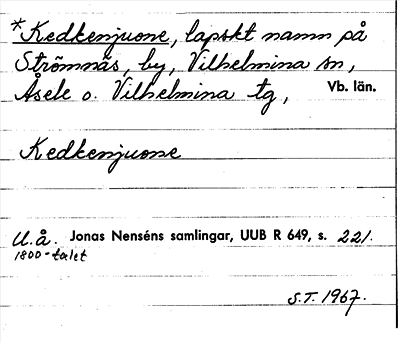 *Kedkenjuone, lapskt namn på
Strömnäs, by, Vilhelmina sn,
Åsele o. Vilhelmina tg, Vb. län.
Kedkenjuone
U.å. Jonas Nenséns samlingar, UUB R 649, s. 221.
1800-talet
S.T. 1967.